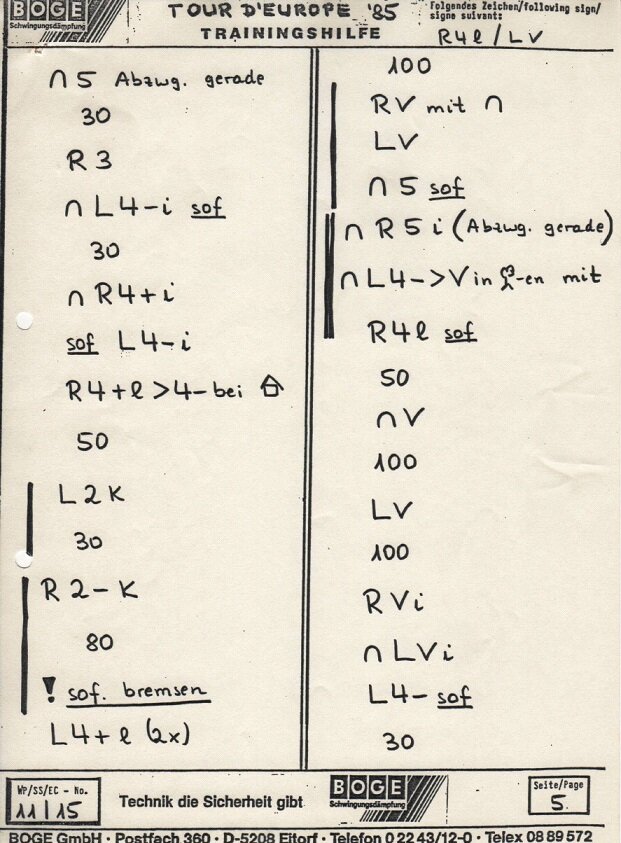 BOGE
Schwingungsdämpfung
TOUR D'EUROPE '85
TRAININGSHILFE
Folgendes Zeichen/following sign/
signe suivant:
R4l/LV
∩ 5 Abzwg. gerade
30
R 3
∩ L4-i sof
30
∩ R4+i
sof L4-i
R4+l>4-bei
50
L2K
30
R2-K
80
! sof. bremsen
L4+l (2x)
100
RV mit ∩
LV
∩ 5 sof
∩ R5i (Abzwg. gerade)
∩ L4->V in -en mit
R4l sof
50
∩V
100
LV
100
RVi
∩LVi
L4- sof
30
WP/SS/EC - No.
11/15
Technik die Sicherheit gibt
BOGE
Schwingungsdämpfung
Seite/Page
5.
BOGE GmbH · Postfach 360 · D-5208 Eitorf · Telefon 0 22 43/12-0 · Telex 08 89 572